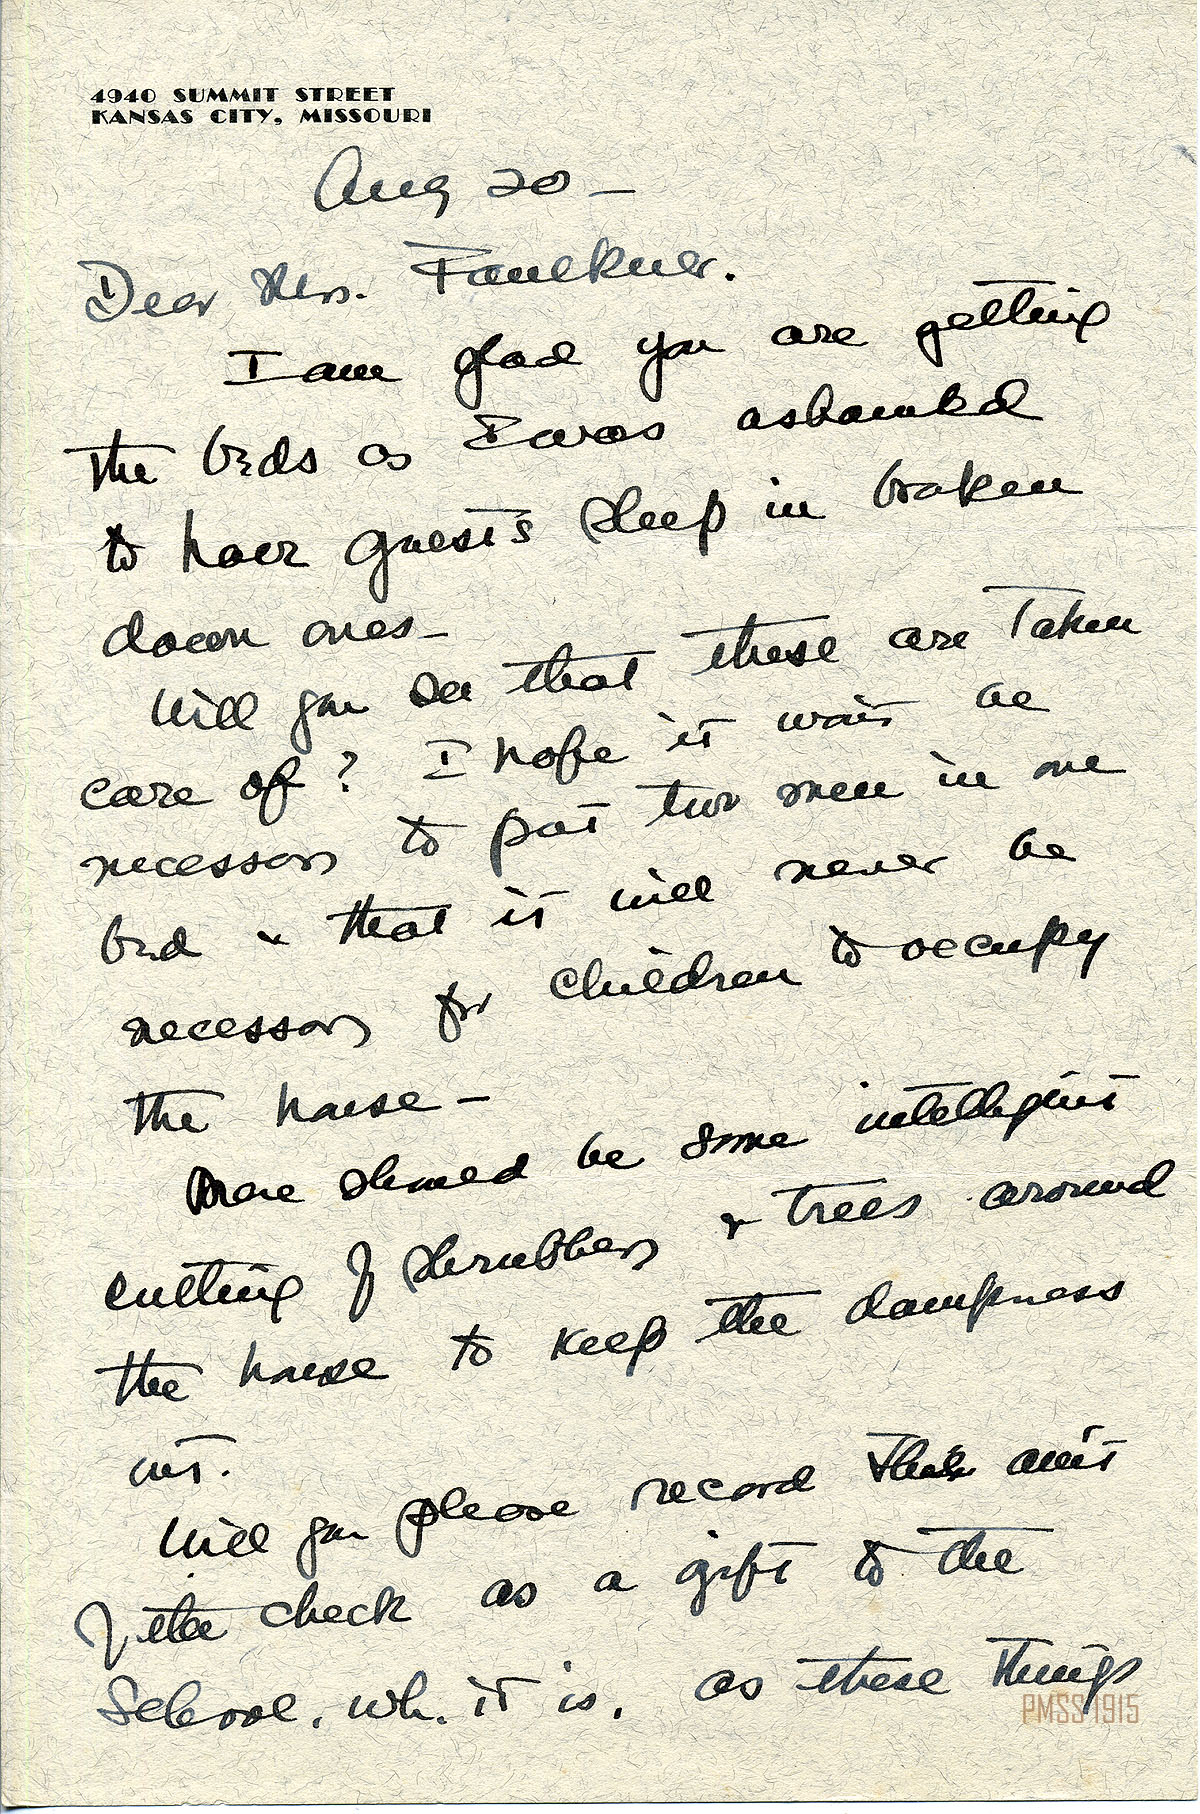 4940 SUMMIT STREET
KANSAS CITY, MISSOURI
Aug 20 —
Dear Mrs. Faulkner.
I am glad you are getting
the beds as I was ashamed
to have guests sleep in broken
down ones —
Will you see that these are taken
care of? I hope it won't be
necessary to put two men in one
bed & that it will never be
necessary for children to occupy
the house —
There should be some intelligent
cutting of shrubbery & trees around
the house to keep the dampness
out.
Will you please record the am't
of the check as a gift to the
School, wh. it is, as these things
PMSS 1915